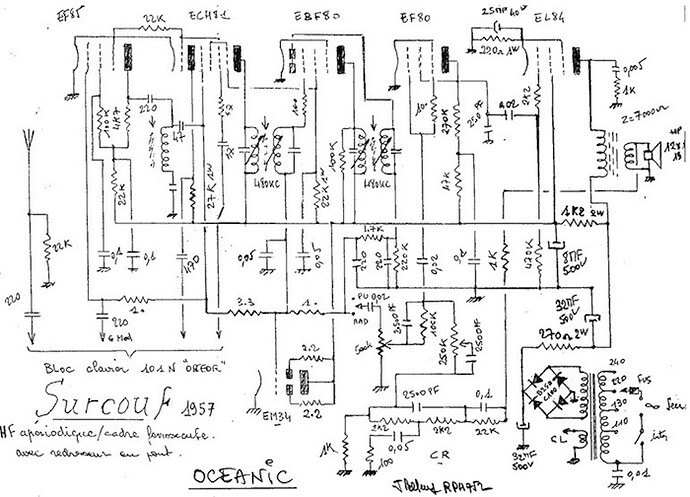 EF85
ECH81
EBF80
EF80
EL84
25MF 40V
220Ω 1W
22K
100K
4K7
220
47
27K 1W
480KC
100K
22K 1W
480KC
10
270K
47K
250PF
0,02
2K2
0,005
1K
Z=7000Ω
HP
22K
22K
0,1
0,1
470
0,05
0,05
4.7K
220
220
220K
0,02
0,1
1K
470K
1K2 2W
8MF
500V
32MF
500V
270Ω 2W
220
220
1.
3.3
1.
PU
0,02
RAD
500K
2500PF
100K
250K
2500PF
6 Mod
Bloc clavier 101 N "OREOR"
2.2
2.2
EM34
2500PF
0,1
2K2
2K2
22K
0,05
1K
100
CR
32MF
500V
240
220
130
110
Fus
CL
inter
0,01
Surcouf 1957
HF apériodique/cadre ferroxcube.
avec redresseur en pont.
OCEANIC